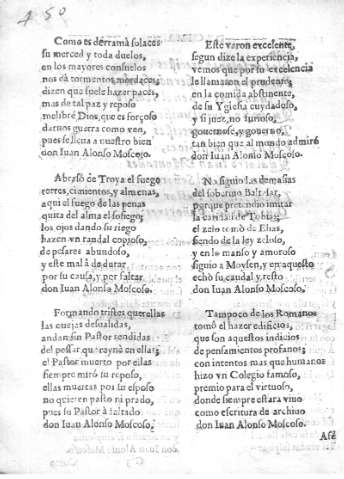 450
Como es derramā solaces
su merced y toda duelos,
en los mayores consuelos
nos dā tormentos mordaces;
dizen que suele hazer pazes,
mas de tal paz y reposo
me libre Dios, que es forçoso
darnos guerra como ven,
pues felicita a nuestro bien
don Iuan Alonso Moscoso.
Abrasò de Troya el fuego
torres, cimientos, y almenas,
aqui el fuego de las penas
quita del alma el sosiego;
los ojos dando su riego
hazen vn raudal copioso,
de pesares abundoso,
y este mal à de durar,
por su causa, y por faltar
don Iuan Alonso Moscoso.
Formando tristes querellas
las ouejas desualidas,
andan sin Pastor rendidas
del pessar que reyna en ellas;
el Pastor muerto por ellas
siempre mirò su reposo,
ellas muertas por su esposo
no quieren pasto ni prado,
pues su Pastor à faltado
don Iuan Alonso Moscoso.
Este varon excelente,
segun dize la experiencia,
vemos que por su excelencia
le llamaron el prudente;
en la comida abstinente,
de su Yglesia cuydadoso,
y si juez, no furioso,
gouernose, y gouerno,
tan bien que al mundo admirò
don Iuan Alonso Moscoso.
No siguio las demasias
del soberuio Baltasar,
porque pretendio imitar
la caridad de Tobias;
el zelo tomò de Elias,
siendo de la ley zeloso,
y en lo manso y amoroso
siguio a Moysen, y en aquesto
echò su caudal y resto
don Iuan Alonso Moscoso.
Tampoco de los Romanos
tomò el hazer edificios,
que son aquestos indicios
de pensamientos profanos;
con intentos mas que humanos
hizo vn Colegio famoso,
premio para el virtuoso,
donde siempre estara viuo
como escritura de archiuo
don Iuan Alonso Moscoso.